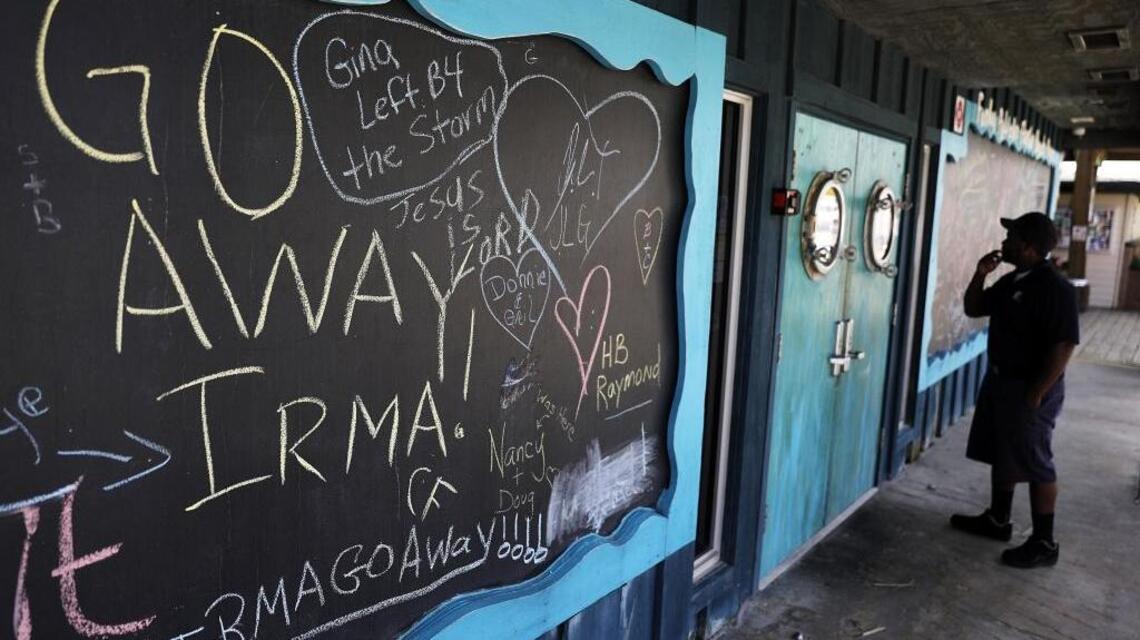 GO
AWAY!
IRMA.
Gina
Left B4
the Storm
Jesus
is
LORD
G
JLT
JLG
B+C
S
+
B
Donnie
&
Gail
HB
Raymond
was Here
Nancy
+
Doug
IRMA GO AWAY!!!!